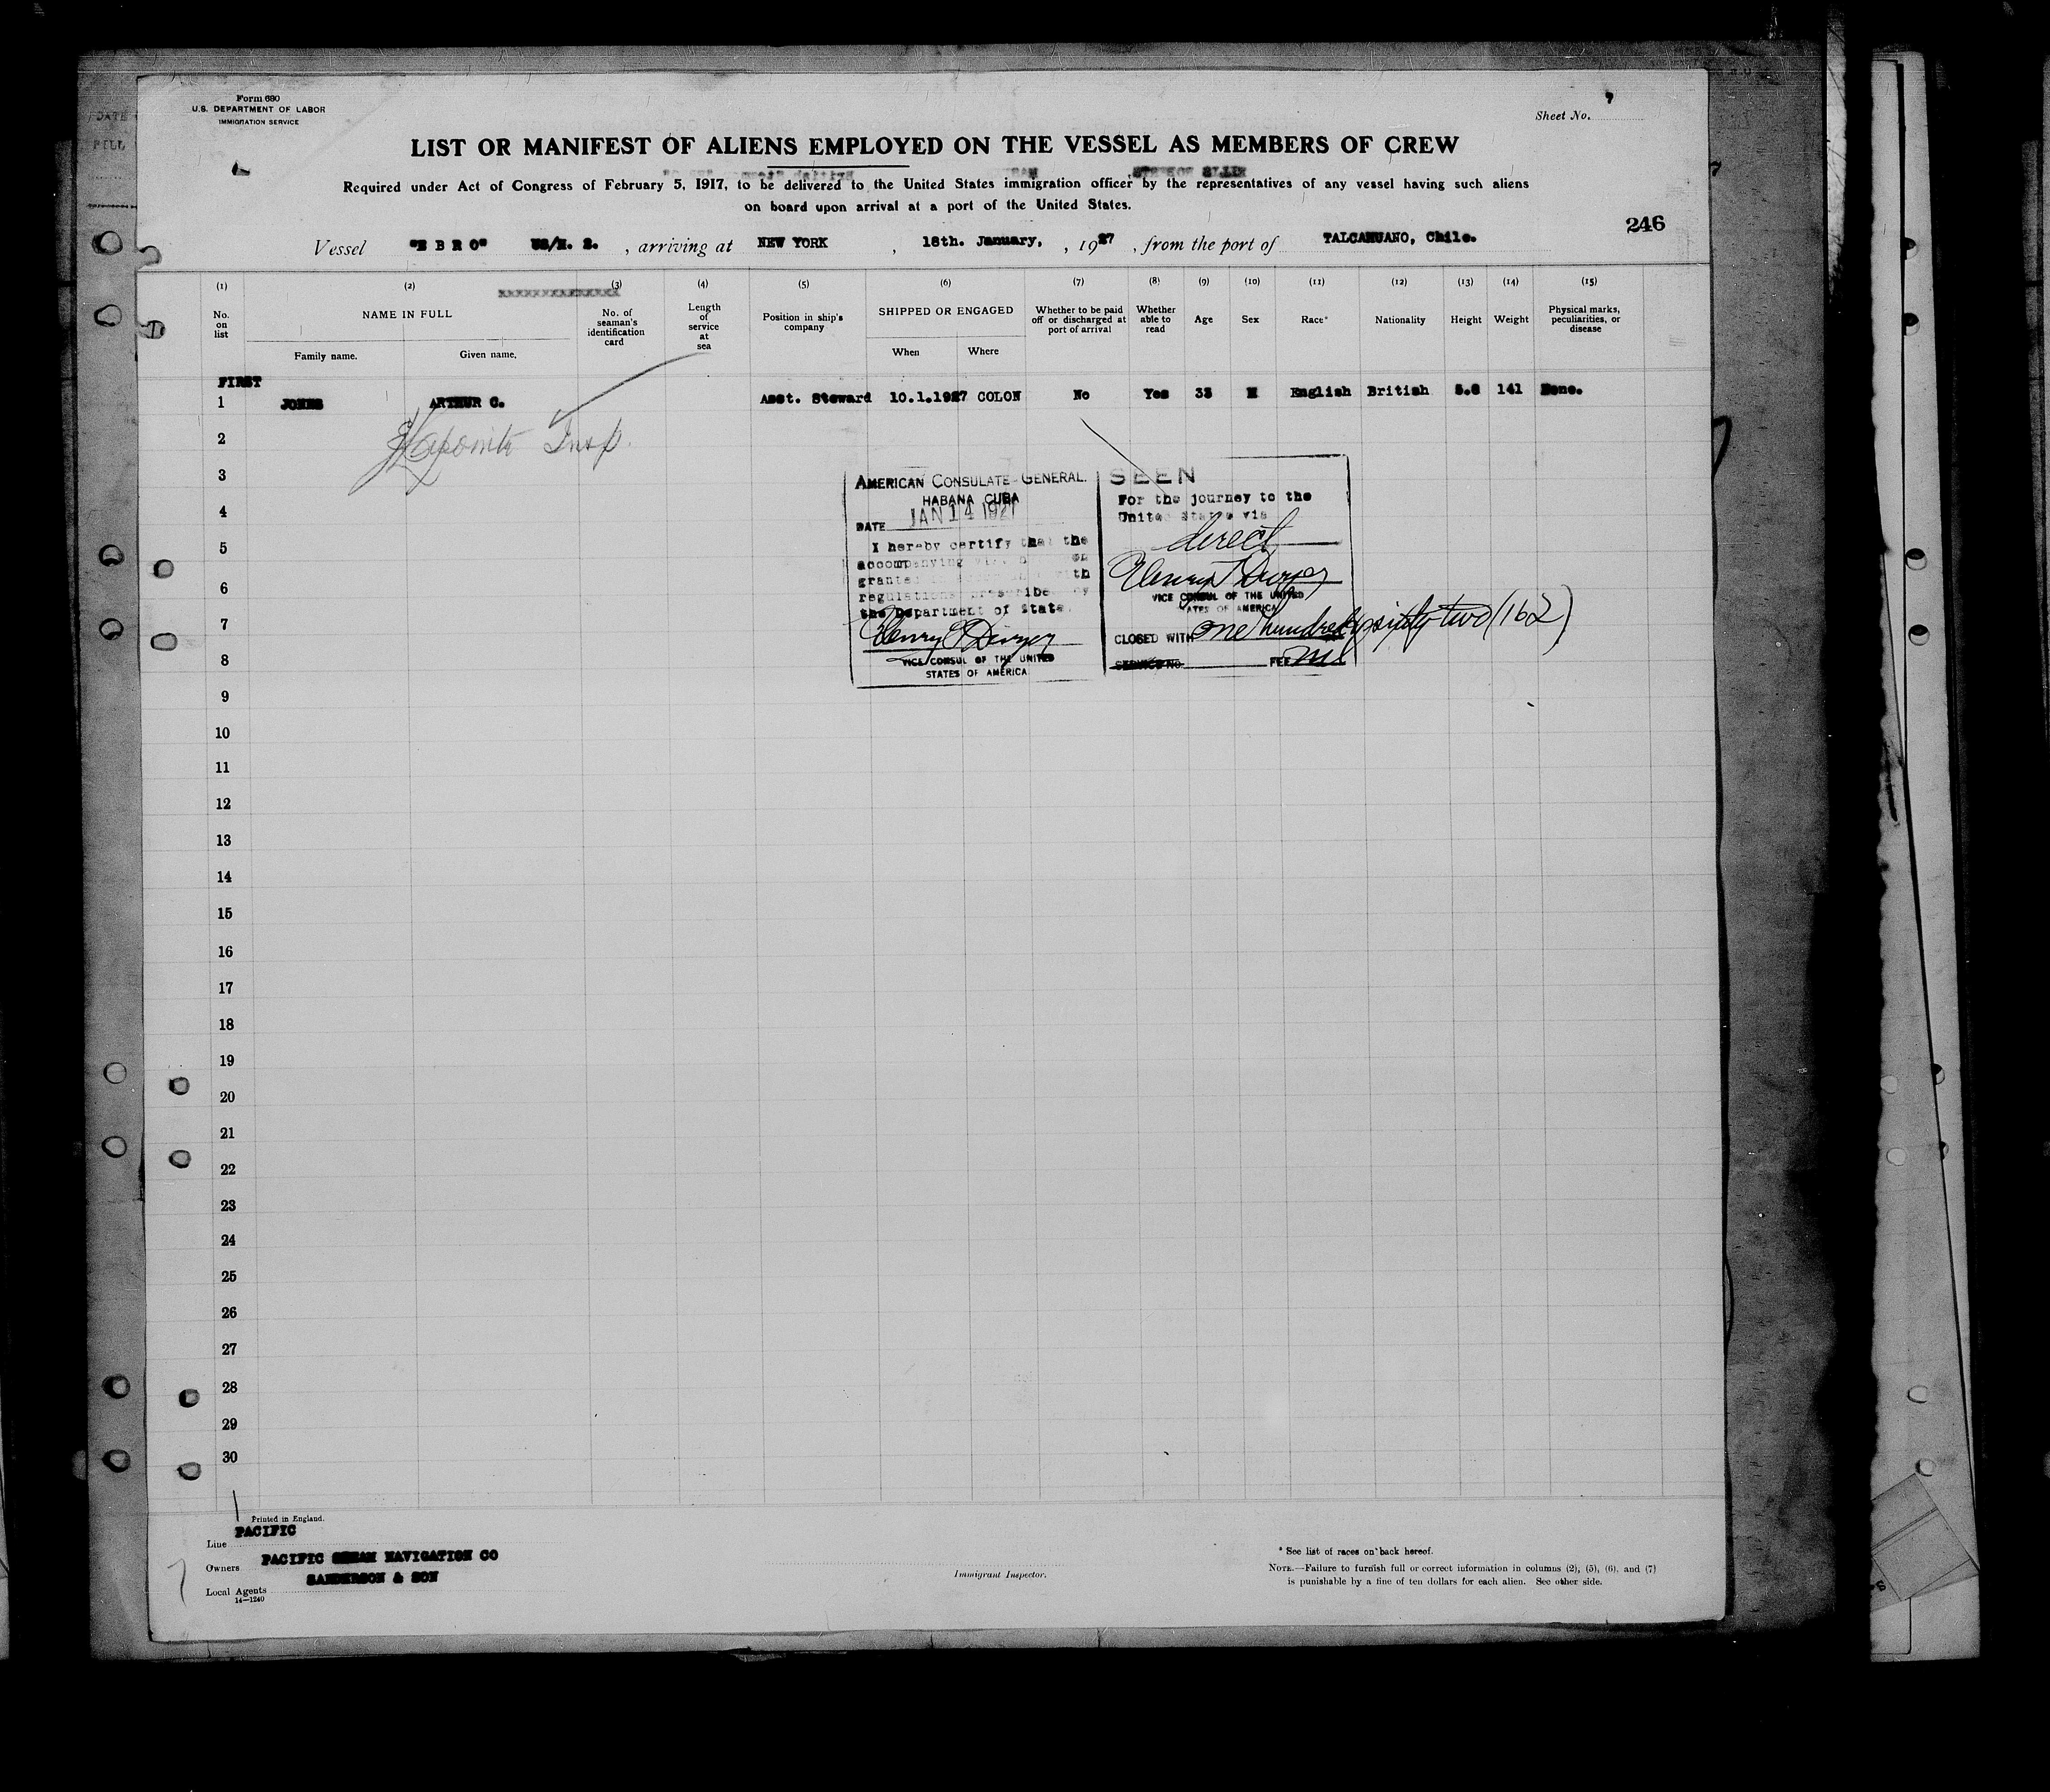 Form 680
U.S. DEPARTMENT OF LABOR
IMMIGRATION SERVICE
Sheet No. 7
LIST OR MANIFEST OF ALIENS EMPLOYED ON THE VESSEL AS MEMBERS OF CREW
Required under Act of Congress of February 5, 1917, to be delivered to the United States immigration officer by the representatives of any vessel having such aliens
on board upon arrival at a port of the United States.
246
Vessel "E B R O" , arriving at NEW YORK , 18th. January, , 1927 , from the port of TALCAHUANO, Chile.
(1) (2) (3) (4) (5) (6) (7) (8) (9) (10) (11) (12) (13) (14) (15)
No. on list
NAME IN FULL
Family name. Given name.
No. of seaman's identification card
Length of service at sea
Position in ship's company
SHIPPED OR ENGAGED
When Where
Whether to be paid off or discharged at port of arrival
Whether able to read
Age
Sex
Race*
Nationality
Height
Weight
Physical marks, peculiarities, or disease
FIRST
1 JONES ARTHUR C. Asst. Steward 10.1.1927 COLON No Yes 33 M English British 5.6 141 None.
2 Insp.
3
4
5
6
7
8
9
10
11
12
13
14
15
16
17
18
19
20
21
22
23
24
25
26
27
28
29
30
AMERICAN CONSULATE-GENERAL.
HABANA CUBA
DATE JAN 14 1927
I hereby certify that the
accompanying
granted with
regulations prescribed by
the Department of State.
VICE CONSUL OF THE UNITED
STATES OF AMERICA
SEEN
For the journey to the
United States via
direct
VICE CONSUL OF THE UNITED
STATES OF AMERICA
CLOSED WITH one hundred sixty-two (162)
SERVICE NO. FEE nil
Printed in England.
Line PACIFIC
Owners PACIFIC STEAM NAVIGATION CO
Local Agents SANDERSON & SON
14—1240
Immigrant Inspector.
* See list of races on back hereof.
NOTE.—Failure to furnish full or correct information in columns (2), (5), (6), and (7)
is punishable by a fine of ten dollars for each alien. See other side.
7